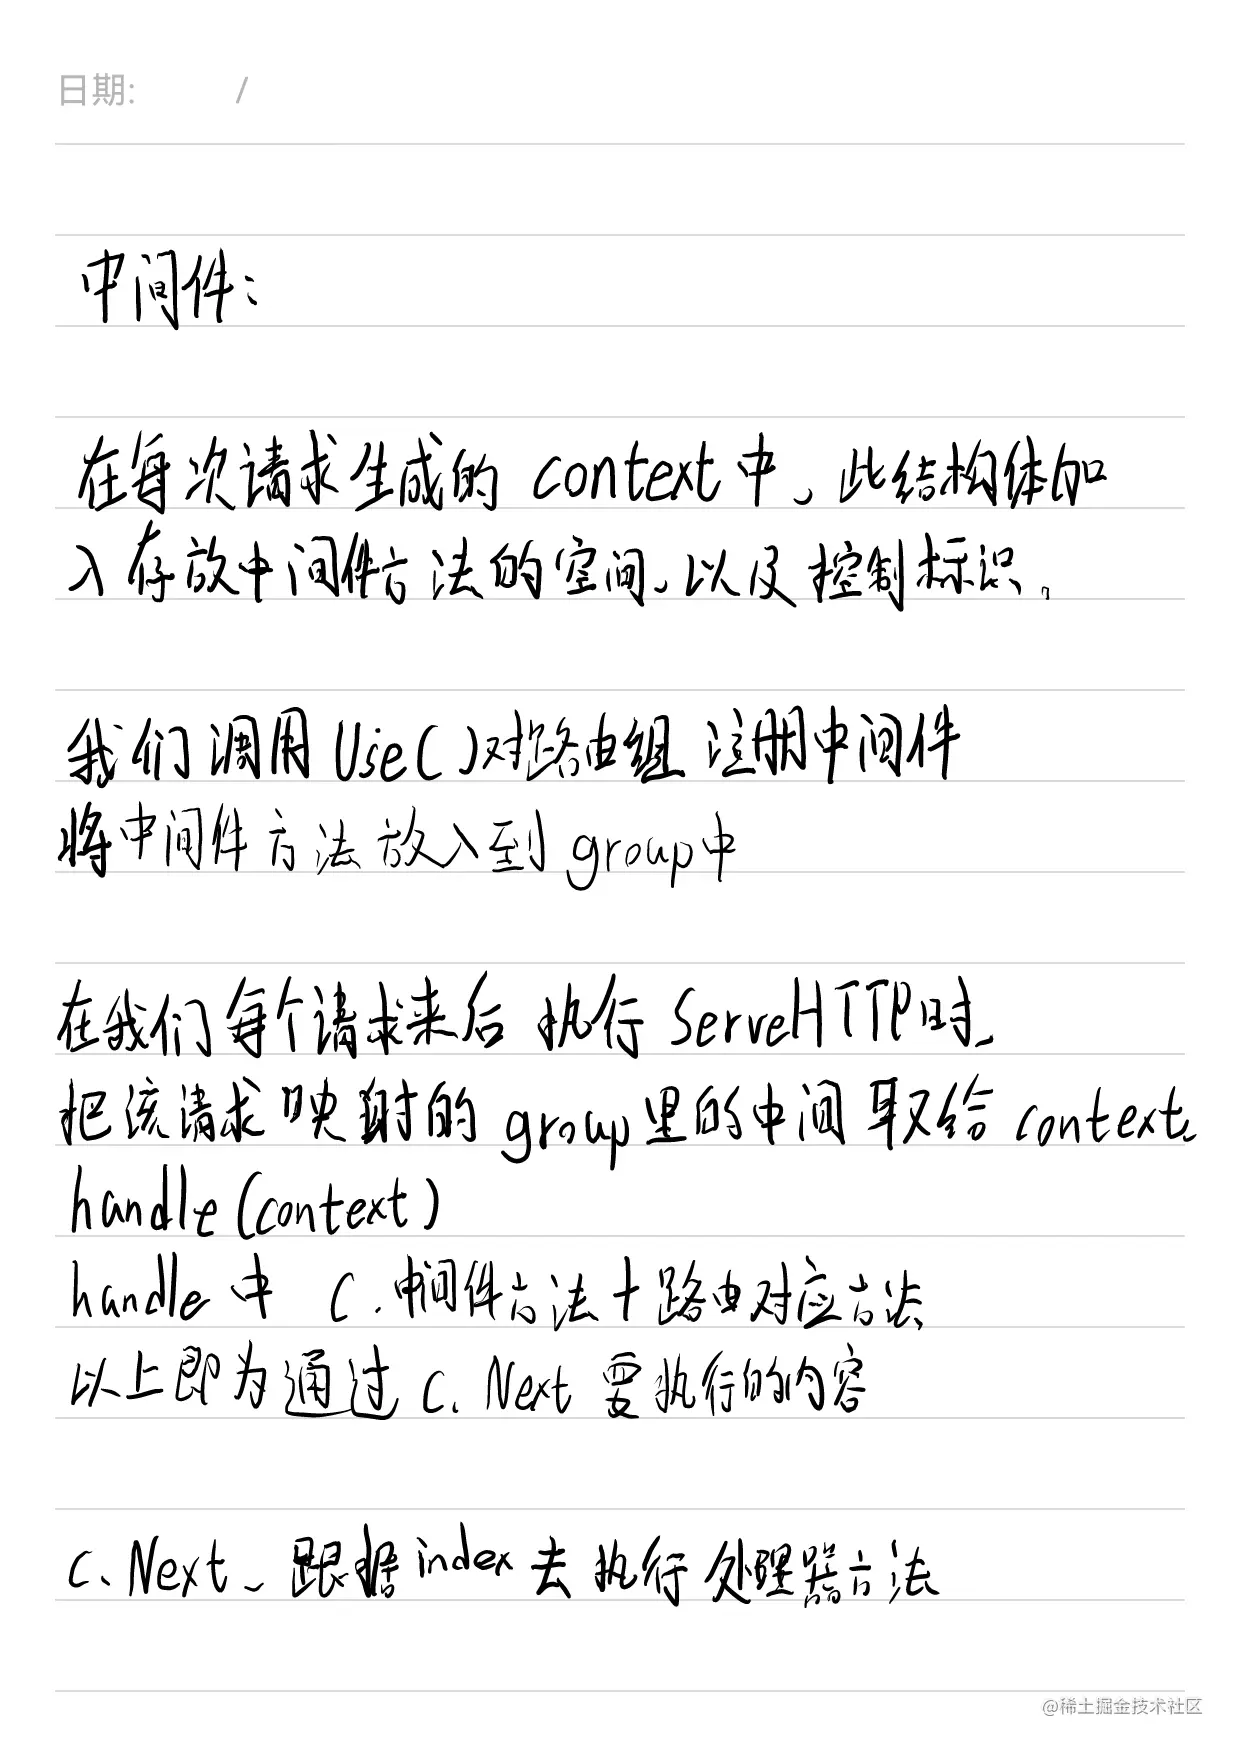 日期: /
中间件：
在每次请求生成的 context中、此结构体加
入存放中间件方法的空间、以及控制标识。
我们调用Use()对路由组 注册中间件
将中间件方法放入到group中
在我们每个请求来后 执行 ServeHTTP时、
把该请求映射的group里的中间 取给 context、
handle(context)
handle中 C.中间件方法+路由对应方法
以上即为通过 C. Next 要执行的内容
C.Next、跟据index去执行处理器方法
@稀土掘金技术社区